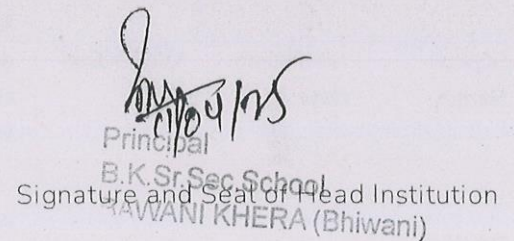 Principal
B.K.Sr.Sec.School
Signature and Seat of Head Institution
KHERA (Bhiwani)